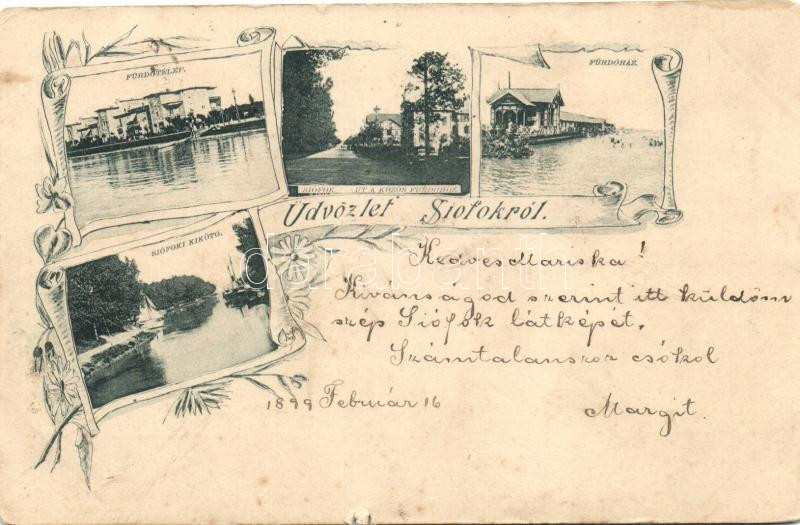 FÜRDŐTELEP.
SIÓFOK. UT A KÖZÖS FÜRDŐHÖZ.
FÜRDŐHÁZ.
Üdvözlet Siófokról.
SIÓFOKI KIKÖTŐ.
Kedves Mariska!
Kivánságod szerint itt küldöm
szép Siófok látképét.
Számtalanszor csókol
1899 Február 16 Margit.
darabanth